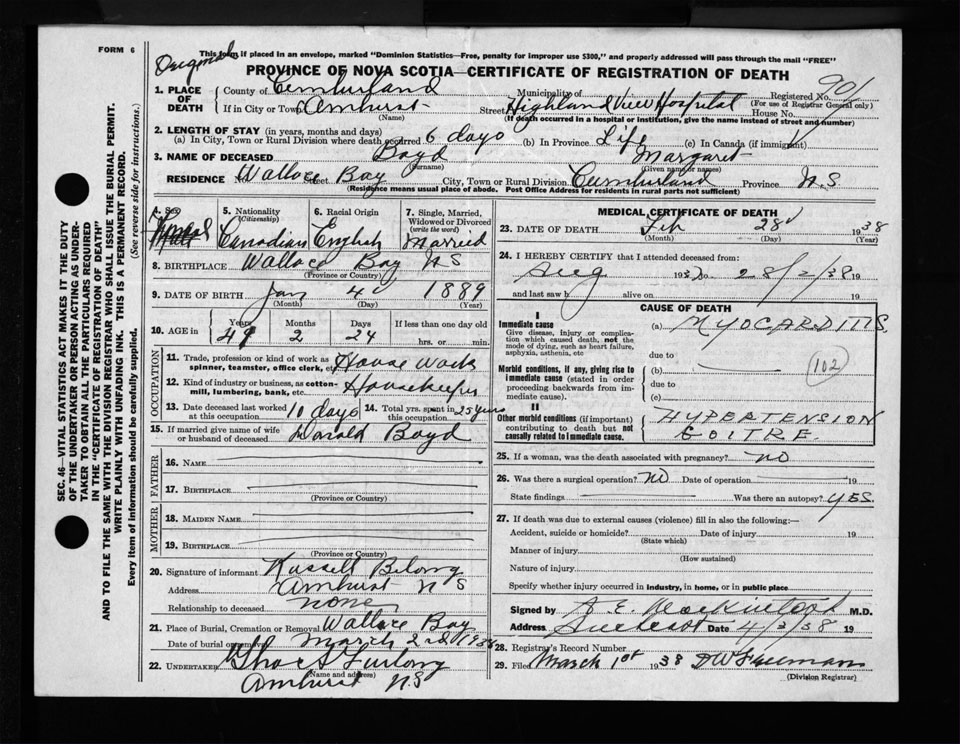 FORM 6
Original
This form if placed in an envelope, marked "Dominion Statistics—Free, penalty for improper use $300," and properly addressed will pass through the mail "FREE"
PROVINCE OF NOVA SCOTIA—CERTIFICATE OF REGISTRATION OF DEATH
1. PLACE OF DEATH County of Cumberland Municipality of Registered No. 901
(For use of Registrar General only)
If in City or Town Amherst Street Highland View Hospital House No.
(Name) (If death occurred in a hospital or institution, give the name instead of street and number)
2. LENGTH OF STAY (in years, months and days)
(a) In City, Town or Rural Division where death occurred 6 days (b) In Province Life (c) In Canada (if immigrant)
3. NAME OF DECEASED Boyd Margaret
(Surname) (Given name or names)
RESIDENCE Wallace Bay Street City, Town or Rural Division Cumberland Province N.S
(Residence means usual place of abode. Post Office Address for residents in rural parts not sufficient)
4. Sex 5. Nationality (Citizenship) 6. Racial Origin 7. Single, Married, Widowed or Divorced (write the word)
Canadian English Married
8. BIRTHPLACE Wallace Bay N S
(Province or Country)
9. DATE OF BIRTH Jan 4 1889
(Month) (Day) (Year)
10. AGE in Years Months Days If less than one day old
49 2 24 hrs. or min.
OCCUPATION
11. Trade, profession or kind of work as spinner, teamster, office clerk, etc. House Work
12. Kind of industry or business, as cotton-mill, lumbering, bank, etc. Housekeeper
13. Date deceased last worked at this occupation 10 days 14. Total yrs. spent in this occupation 25 years
15. If married give name of wife or husband of deceased Donald Boyd
FATHER
16. NAME
17. BIRTHPLACE
(Province or Country)
MOTHER
18. MAIDEN NAME
19. BIRTHPLACE
(Province or Country)
20. Signature of informant Russell
Address Amherst N S
Relationship to deceased none
21. Place of Burial, Cremation or Removal Wallace Bay
Date of burial or removal March 2nd 1938
22. UNDERTAKER Furlong
(Name and address)
Amherst N.S
MEDICAL CERTIFICATE OF DEATH
23. DATE OF DEATH Feb 28 1938
(Month) (Day) (Year)
24. I HEREBY CERTIFY that I attended deceased from:
Aug 193 to 28/2/38 19
and last saw h alive on 19
CAUSE OF DEATH
I
Immediate cause (a) MYOCARDITIS.
Give disease, injury or complication which caused death, not the mode of dying, such as heart failure, asphyxia, asthenia, etc
due to
102
Morbid conditions, if any, giving rise to immediate cause (stated in order proceeding backwards from immediate cause).
(b)
due to
(c)
II
Other morbid conditions (if important) contributing to death but not causally related to immediate cause.
HYPERTENSION
GOITRE.
25. If a woman, was the death associated with pregnancy? NO
26. Was there a surgical operation? NO Date of operation
State findings Was there an autopsy? YES.
27. If death was due to external causes (violence) fill in also the following:—
Accident, suicide or homicide? Date of injury 19
(State which)
Manner of injury
(How sustained)
Nature of injury
Specify whether injury occurred in industry, in home, or in public place
Signed by A. E. M.D.
Address Date 4/3/38 19
28. Registrar's Record Number
29. Filed March 1st 1938 D W Freeman
(Division Registrar)
SEC. 46—VITAL STATISTICS ACT MAKES IT THE DUTY
OF THE UNDERTAKER OR PERSON ACTING AS UNDER-
TAKER TO OBTAIN ALL THE PARTICULARS REQUIRED
IN THE "CERTIFICATE OF REGISTRATION OF DEATH"
AND TO FILE THE SAME WITH THE DIVISION REGISTRAR WHO SHALL ISSUE THE BURIAL PERMIT.
WRITE PLAINLY WITH UNFADING INK. THIS IS A PERMANENT RECORD.
Every item of information should be carefully supplied. (See reverse side for instructions.)